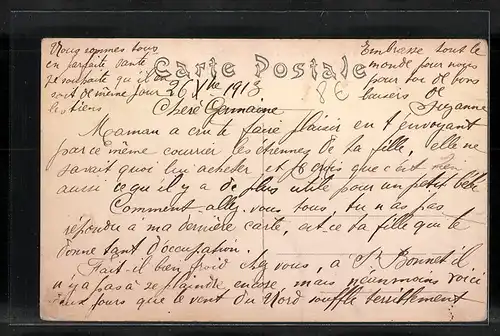 Carte Postale
26 Xbre 1913
Chère Germaine
Maman a cru te faire plaisir en t'envoyant
par ce même courrier les étrennes de ta fille, elle ne
savait quoi lui acheter et je crois que c'est bien
aussi ce qu'il y a de plus utile pour un petit bébé
Comment allez-vous tous, tu n'as pas
répondu a ma dernière carte, est ce ta fille qui te
donne tant d'occupation.
Fait-il bien froid chez vous, a St Bonnet il
n'y a pas à se plaindre encore mais néanmoins voici
deux jours que le vent du Nord souffle terriblement
Nous sommes tous
en parfaite santé
je souhaite qu'il en
soit de même pour
les tiens
Embrasse tout le
monde pour nous
pour toi de bons
baisers de
Suzanne